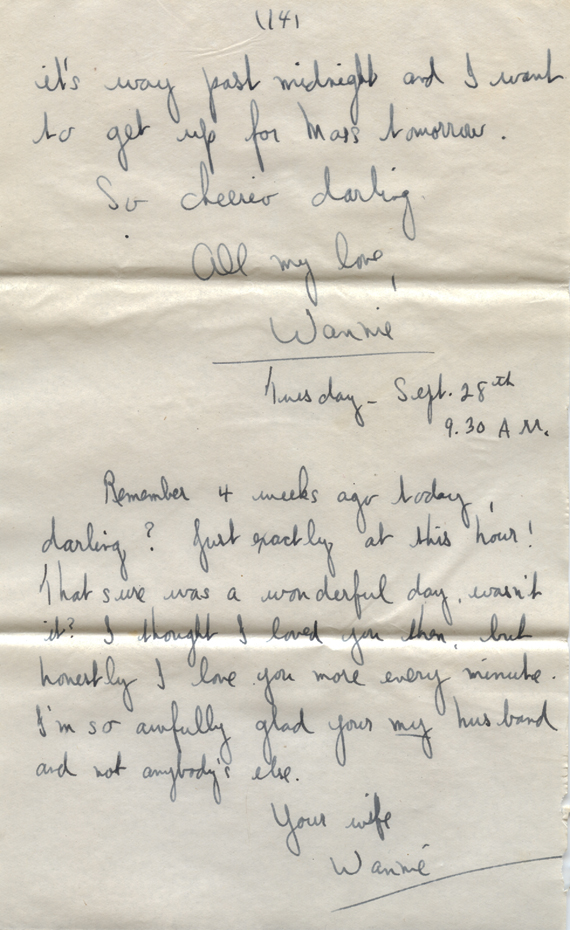 (14)
it's way past midnight and I want
to get up for Mass tomorrow.
So cheerio darling
All my love,
Wannie
Tuesday - Sept. 28th
9.30 A.M.
Remember 4 weeks ago today,
darling? Just exactly at this hour!
That sure was a wonderful day, wasn't
it? I thought I loved you then, but
honestly I love you more every minute.
I'm so awfully glad your my husband
and not anybody's else.
Your wife
Wannie